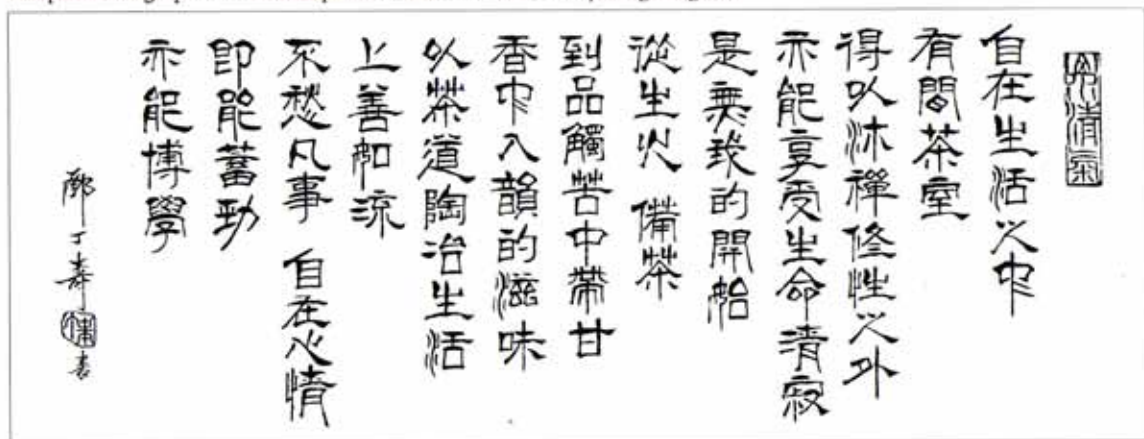 自在生活之中
有間茶室
得以沐禪修性之外
亦能享受生命清寂
是無我的開始
從生火 備茶
到品觸苦中帶甘
香中入韻的滋味
以茶道陶冶生活
上善如流
不愁凡事 自在心情
即能蓄勁
亦能博學
鄺丁壽 書